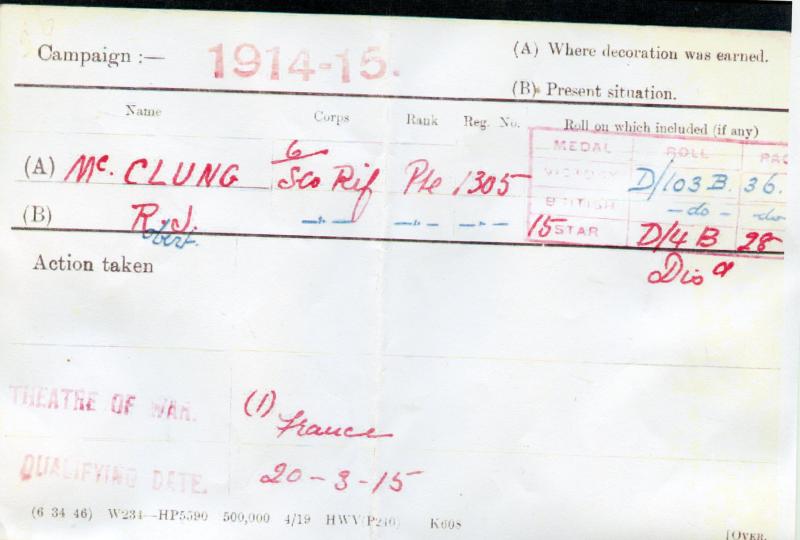 Campaign :— 1914-15. (A) Where decoration was earned.
(B) Present situation.
Name Corps Rank Reg. No. Roll on which included (if any)
MEDAL ROLL PAG
(A) Mc. CLUNG 6/Sco Rif Pte 1305 VICTORY D/103 B. 36.
BRITISH -do- -do-
(B) R. J. —"— —"— —"— 15 STAR D/4 B 28
obert.
Action taken Disd
THEATRE OF WAR. (1) France
QUALIFYING DATE. 20-3-15
(6 34 46) W234—HP5590 500,000 4/19 HWV(P240) K608
[OVER.